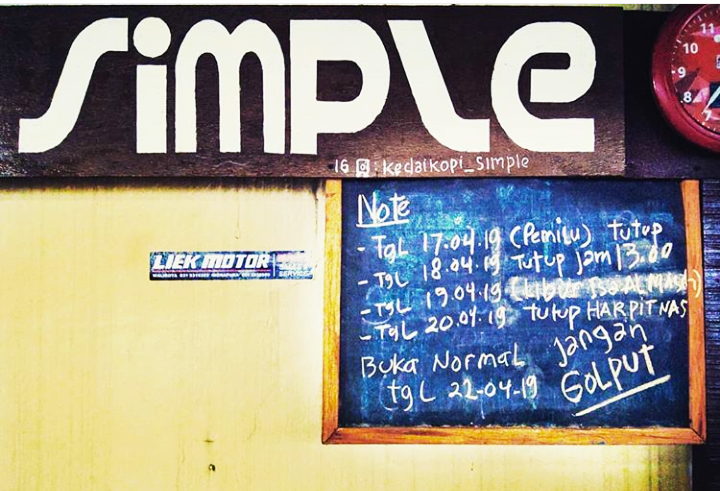 SimPLe
IG : kedaikopi_simple
11
10
9
8
LIEK MOTOR
SERVICE
Note
- TgL 17.04.19 (Pemilu) tutup
- TgL 18.04.19 tutup jam 13.00
- TgL 19.04.19 (Libur
- TgL 20.04.19 tutup HARPITNAS
BUKA NORMAL
(tgL 22-04-19
jangan
GOLPUT